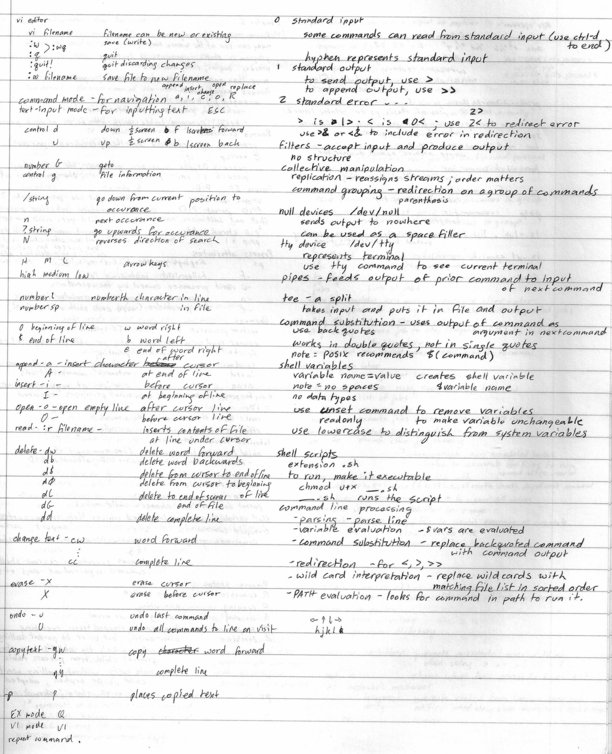 vi editor
vi filename filename can be new or existing
:w >:wq save (write)
:q quit
:quit! quit discarding changes
:w filename save file to new filename
append insert change open replace
command mode - for navigation a, i, c, o, R
text-input mode - for inputting text ESC
control d down ½ screen f 1 screen forward
u up ½ screen b 1 screen back
number G goto
control g file information
/string go down from current position to
occurance
n next occurance
?string go upwards for occurance
N reverses direction of search
H M L arrow keys
high medium low
number l numberth character in line
number sp in file
0 beginning of line w word right
$ end of line b word left
e end of word right
append - a - insert character after cursor
A - at end of line
insert - i - before cursor
I - at beginning of line
open - o - open empty line after cursor line
O - before cursor line
read - :r filename - inserts contents of file
at line under cursor
delete - dw delete word forward
db delete word backwards
d$ delete from cursor to end of line
d0 delete from cursor to beginning
dL delete to end of screen of line
dG end of file
dd delete complete line
change text - cw word forward
:
cc complete line
erase - x erase cursor
X erase before cursor
undo - u undo last command
U undo all commands to line on visit
← ↑ ↓ →
h j k l
copy text - yw copy word forward
:
yy complete line
p places copied text
EX mode Q
VI mode vi
repeat command .
0 standard input
some commands can read from standard input (use ctrl-d
to end)
hyphen represents standard input
1 standard output
to send output, use >
to append output, use >>
2 standard error - - -
2>
> is 1> . < is 0< . use 2< to redirect error
use >& or <& to include error in redirection
filters - accept input and produce output
no structure
collective manipulation
replication - reassigns streams; order matters
command grouping - redirection on a group of commands
parenthasis
null devices /dev/null
sends output to nowhere
can be used as a space filler
tty device /dev/tty
represents terminal
use tty command to see current terminal
pipes - feeds output of prior command to input
of next command
tee - a split
takes input and puts it in file and output
command substitution - uses output of command as
use back quotes argument in next command
works in double quotes, not in single quotes
note = POSIX recommends $(command)
shell variables
variable name=value creates shell variable
note = no spaces $variable name
no data types
use unset command to remove variables
readonly to make variable unchangeable
use lowercase to distinguish from system variables
shell scripts
extension .sh
to run, make it executable
chmod u+x __.sh
__.sh runs the script
command line processing
-parsing - parse line
-variable evaluation - $vars are evaluated
-command substitution - replace backquoted command
with command output
-redirection - for <, >, >>
-wild card interpretation - replace wildcards with
matching file list in sorted order
-PATH evaluation - looks for command in path to run it.